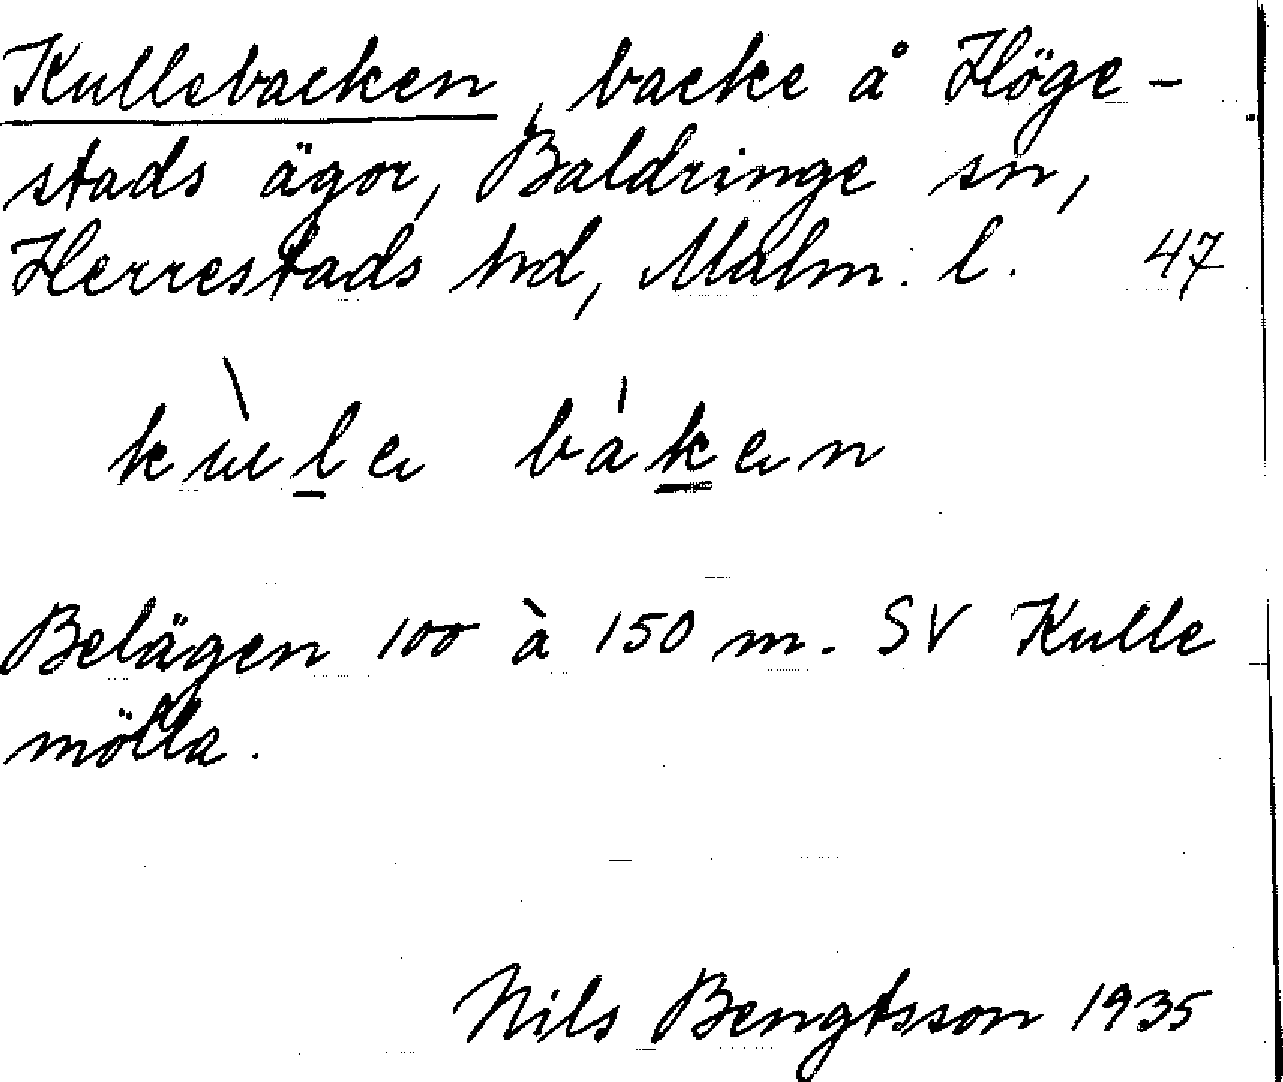 Kullebacken, backe å Höge-
stads ägor, Baldringe sn,
Herrestads hd, Malm. l. 47
Belägen 100 à 150 m. SV Kulle
mölla.
Nils Bengtsson 1935